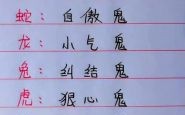 蛇：自傲鬼
龙：小气鬼
兔：纠结鬼
虎：狠心鬼